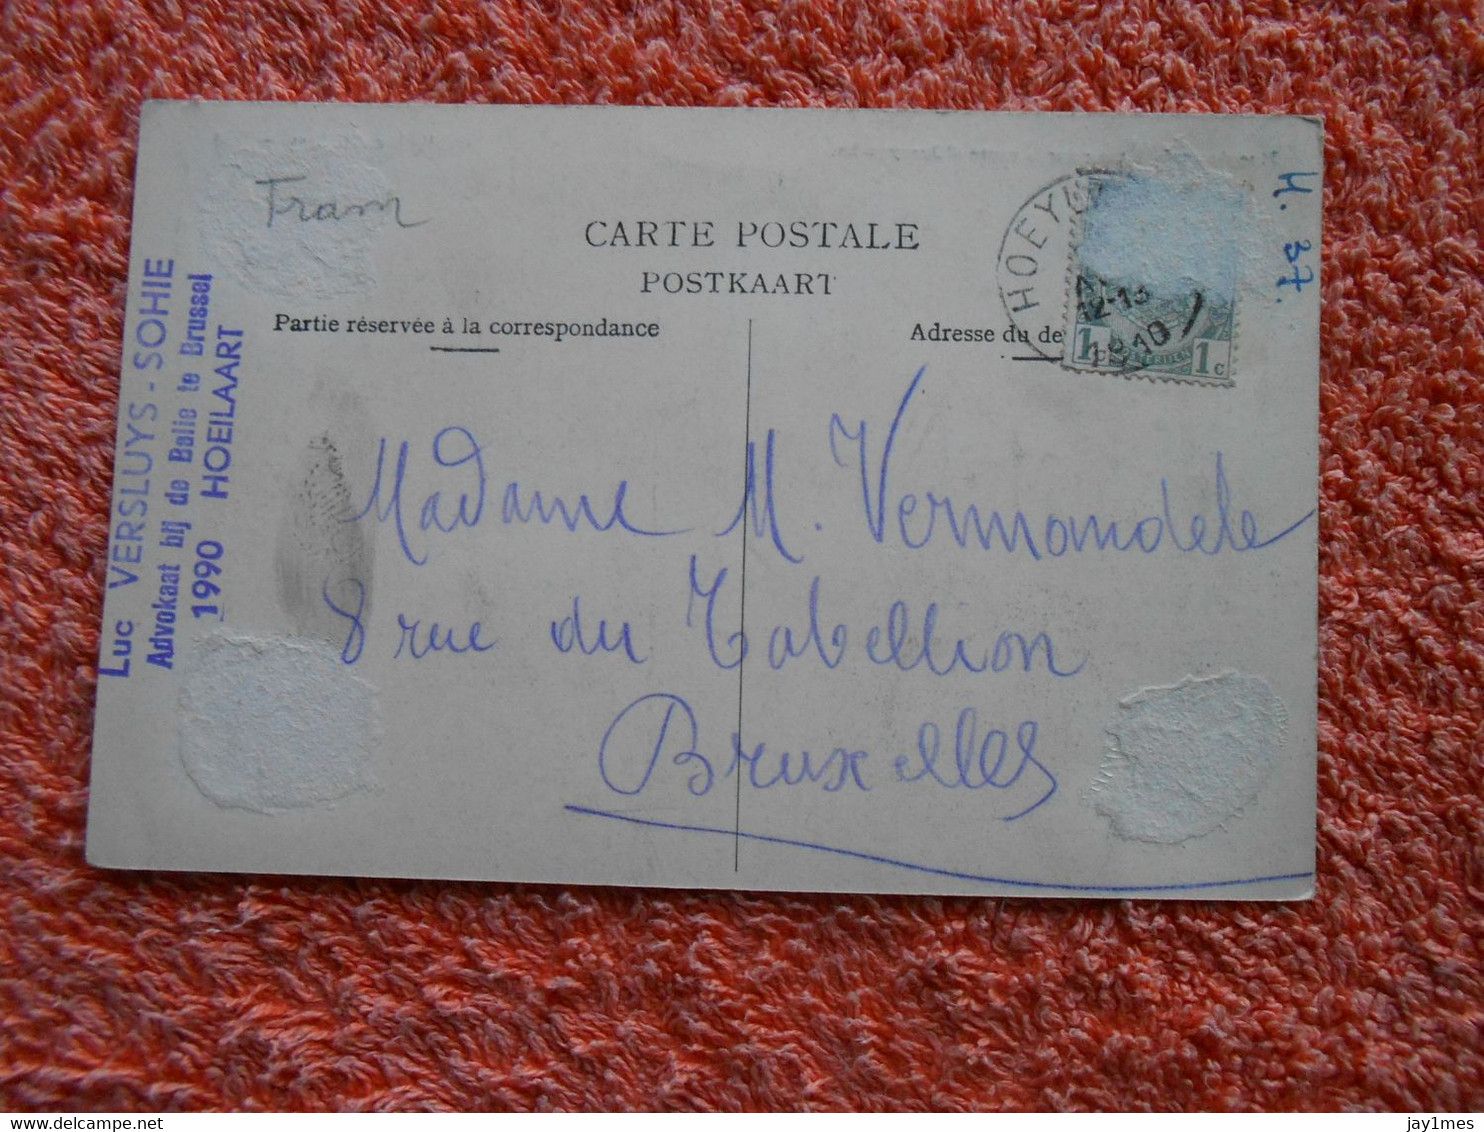 Tram
CARTE POSTALE
POSTKAART
Partie réservée à la correspondance
Adresse du de
HOEYL
12-13
18 10
1c 1c
H. 37.
Madame M. Vermandele
8 rue du Tabellion
Bruxelles
Luc VERSLUYS - SOHIE
Advokaat bij de Balie te Brussel
1990 HOEILAART
jay1mes